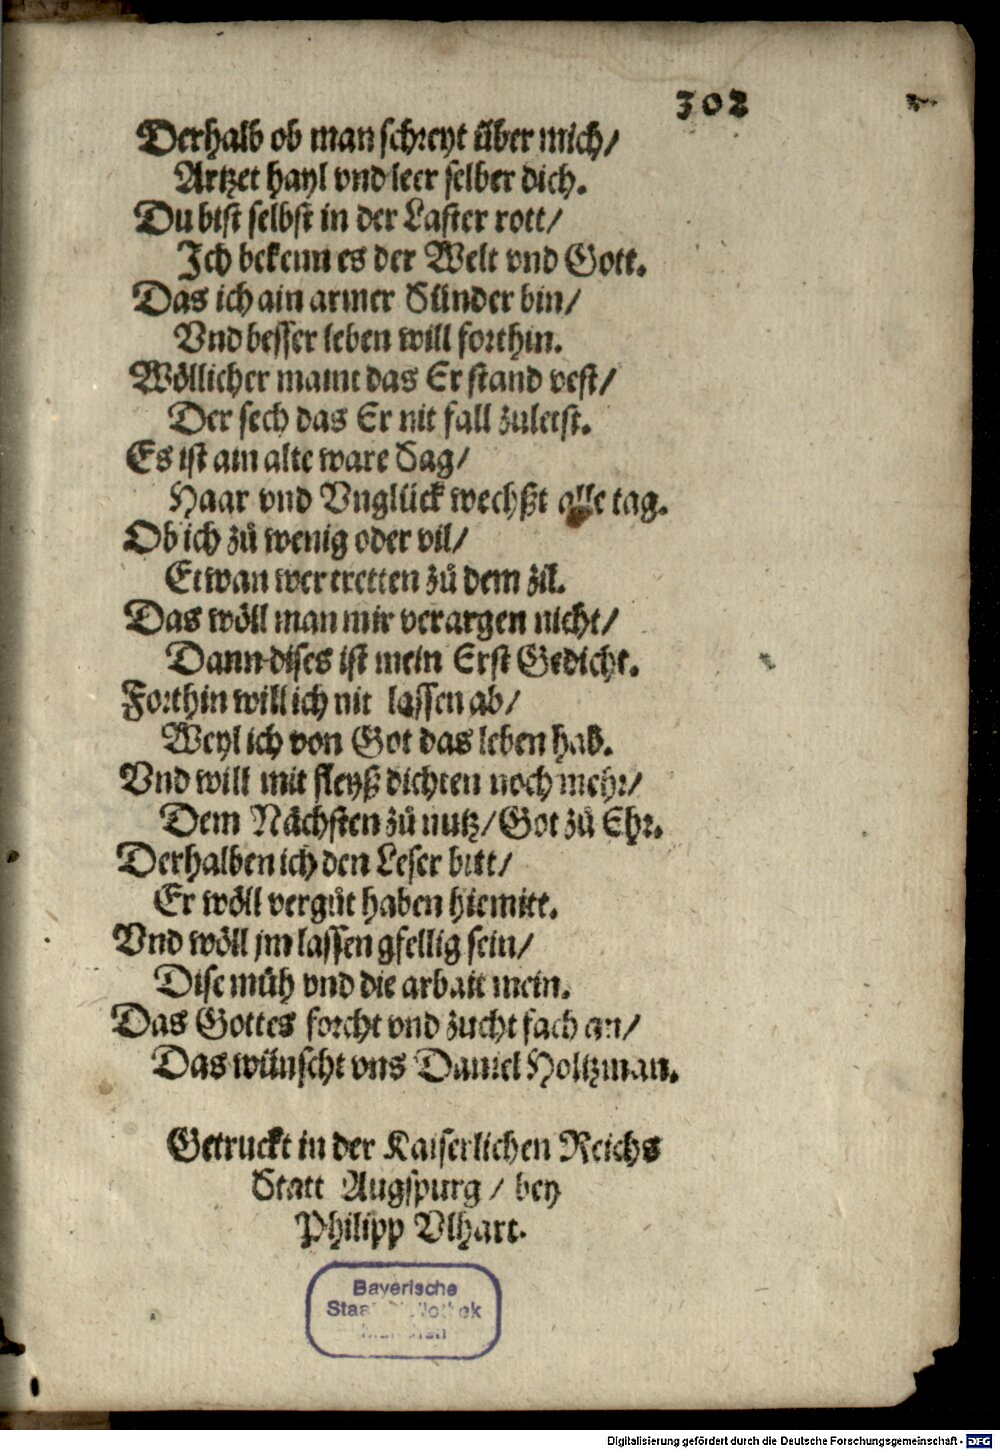 302
Derhalb ob man schreyt über mich/
Artzet hayl vnd leer selber dich.
Du bist selbst in der Laster rott/
Ich bekenn es der Welt vnd Gott.
Das ich ain armer Sünder bin/
Vnd besser leben will forthin.
Wöllicher maint das Er stand vest/
Der sech das Er nit fall zuletst.
Es ist ain alte ware Sag/
Haar vnd Vnglück wechßt alle tag.
Ob ich zů wenig oder vil/
Etwan wer tretten zů dem zil.
Das wöll man mir verargen nicht/
Dann dises ist mein Erst Gedicht.
Forthin will ich nit lassen ab/
Weyl ich von Got das leben hab.
Vnd will mit fleyß dichten noch mehr/
Dem Nächsten zů nutz/ Got zů Ehr.
Derhalben ich den Leser bitt/
Er wöll vergůt haben hiemitt.
Vnd wöll jm lassen gfellig sein/
Dise müh vnd die arbait mein.
Das Gottes forcht vnd zucht fach an/
Das wünscht vns Daniel Holtzman.
Getruckt in der Kaiserlichen Reichs
Statt Augspurg / bey
Philipp Vlhart.
Bayerische
Staatsbibliothek
München
Digitalisierung gefördert durch die Deutsche Forschungsgemeinschaft - DFG